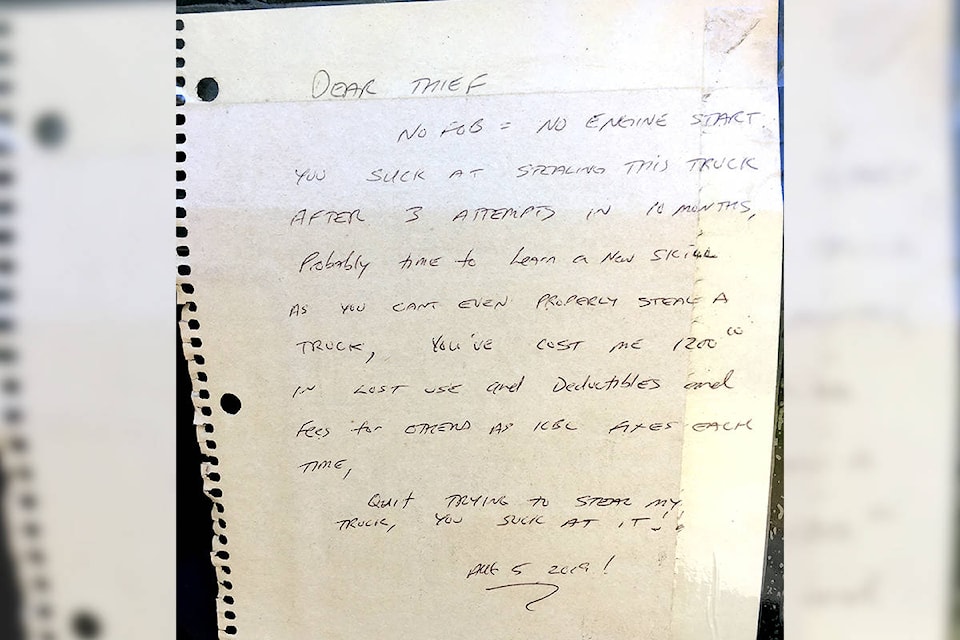 DEAR THIEF
NO FOB = NO ENGINE START
YOU SUCK AT STEALING THIS TRUCK
AFTER 3 ATTEMPTS IN 10 MONTHS,
Probably time to Learn a New SKILL
AS YOU CANT EVEN PROPERLY STEAL A
TRUCK, YOU'VE COST ME 1200 00
IN LOST USE and Deductibles and
Fees for OTHERS AS ICBC FIXES EACH
TIME,
Quit TRYING TO STEAL MY
TRUCK, YOU SUCK AT IT!
AUG 5 2019!